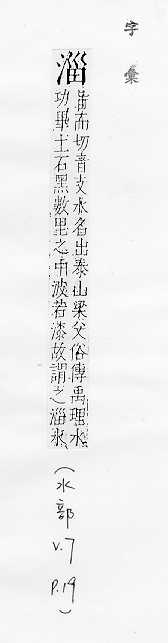 字彙
淄
旨而切音支水名出泰山梁父俗傳禹理水
功畢土石黑數里之中波若漆故謂之淄水
(水部
V.7
P.19)